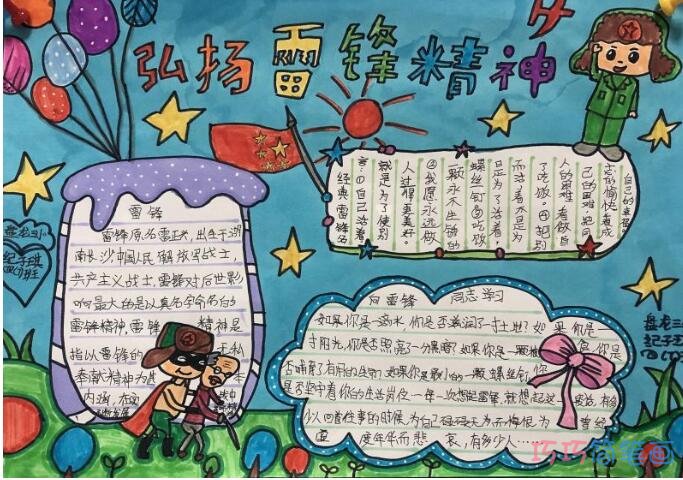 弘扬雷锋精神
雷锋
雷锋原名雷正兴,出生于湖
南长沙中国人民解放军战士,
共产主义战士,雷锋对后世影
响最大的是以其名命名的
雷锋精神,雷锋 精神是
指以雷锋的 无私
奉献精神为基 本
内涵,在
经典雷锋名
言:①自己活着
就是为了使别
人过得更美好。
②我愿永远做
一颗永不生锈的
螺丝钉③吃饭
是为了活着,
而活着不是为
了吃饭。④把别
人的困难,看做自
己的困难把同
志的愉快看成
自己的幸福
向雷锋 同志学习
如果你是一滴水,你是否滋润了一寸土地?如果你是一
寸阳光,你是否照亮了一分黑暗?如果你是一颗粮食,你是
否哺育了有用的生命?如果你是最小的一颗螺丝钉,你
是否坚守着你的生活岗位一年一次想起雷锋,就想起这 有多
少人回首往事的时候,为自己碌碌无为而悔恨为
虚度年华而悲哀,有多少人……
盘龙三小
纪子珏
四(1)班
巧巧简笔画